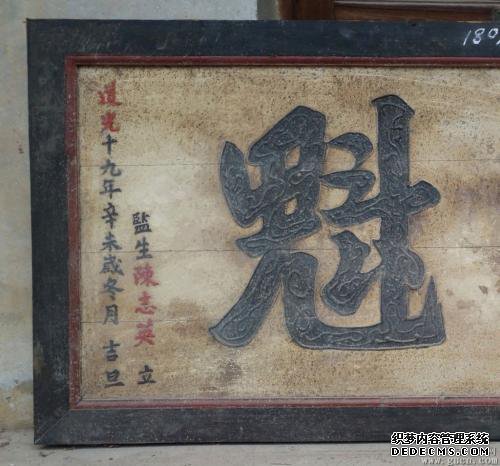 180
魁
監生陳志英 立
道光十九年辛未歲冬月 吉旦
织梦内容管理系统
DEDECMS.COM